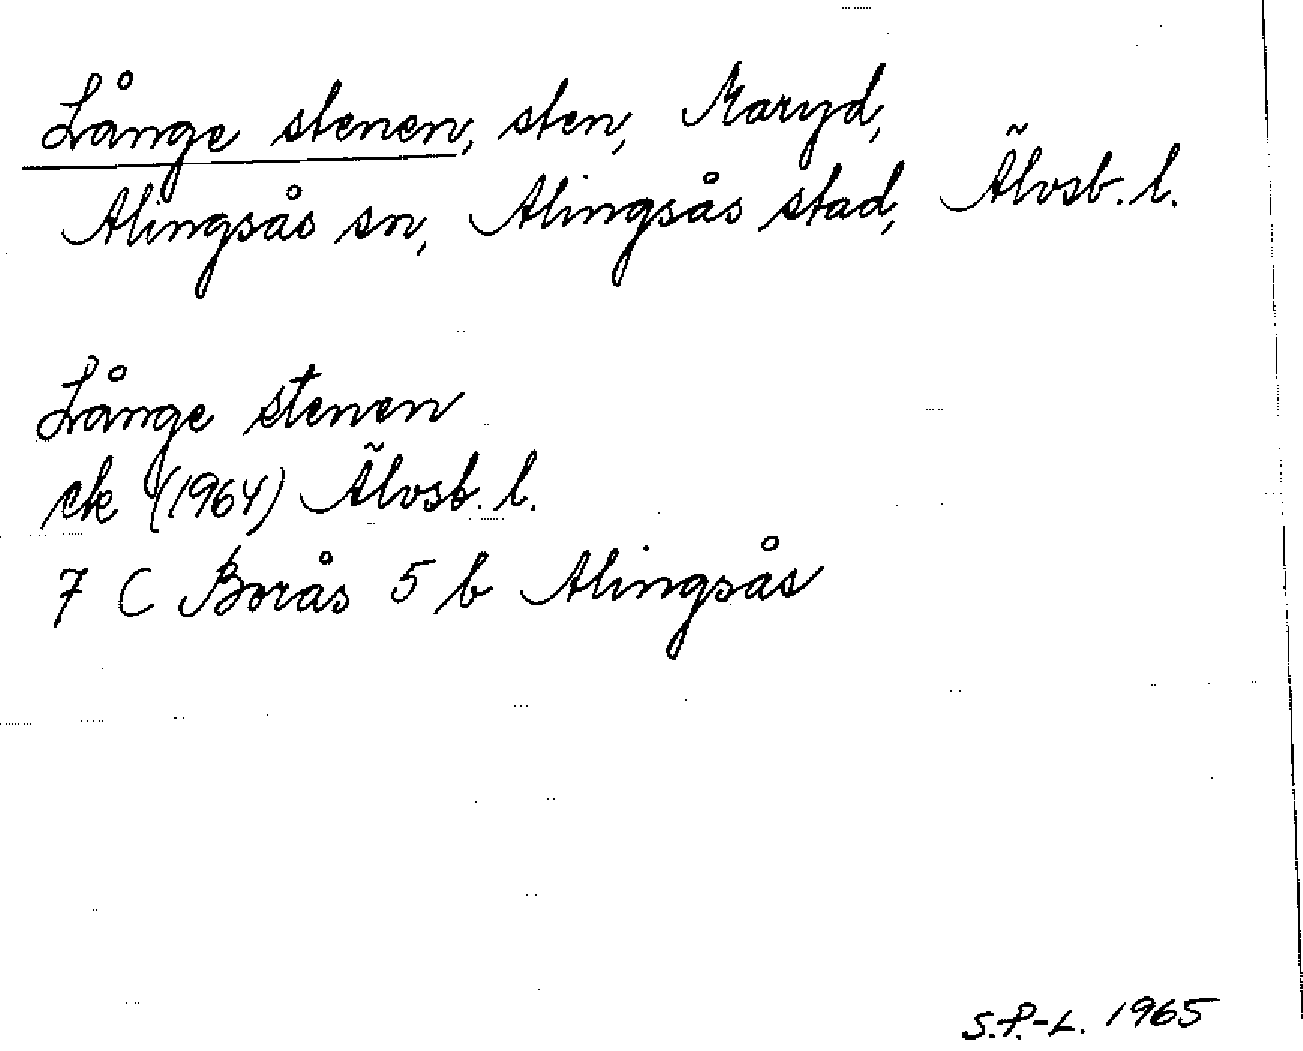 Långe stenen, sten, Maryd,
Alingsås sn, Alingsås stad, Älvsb. l.
Långe stenen
ek (1964) Älvsb. l.
7 C Borås 5 b Alingsås
S.P.-L. 1965